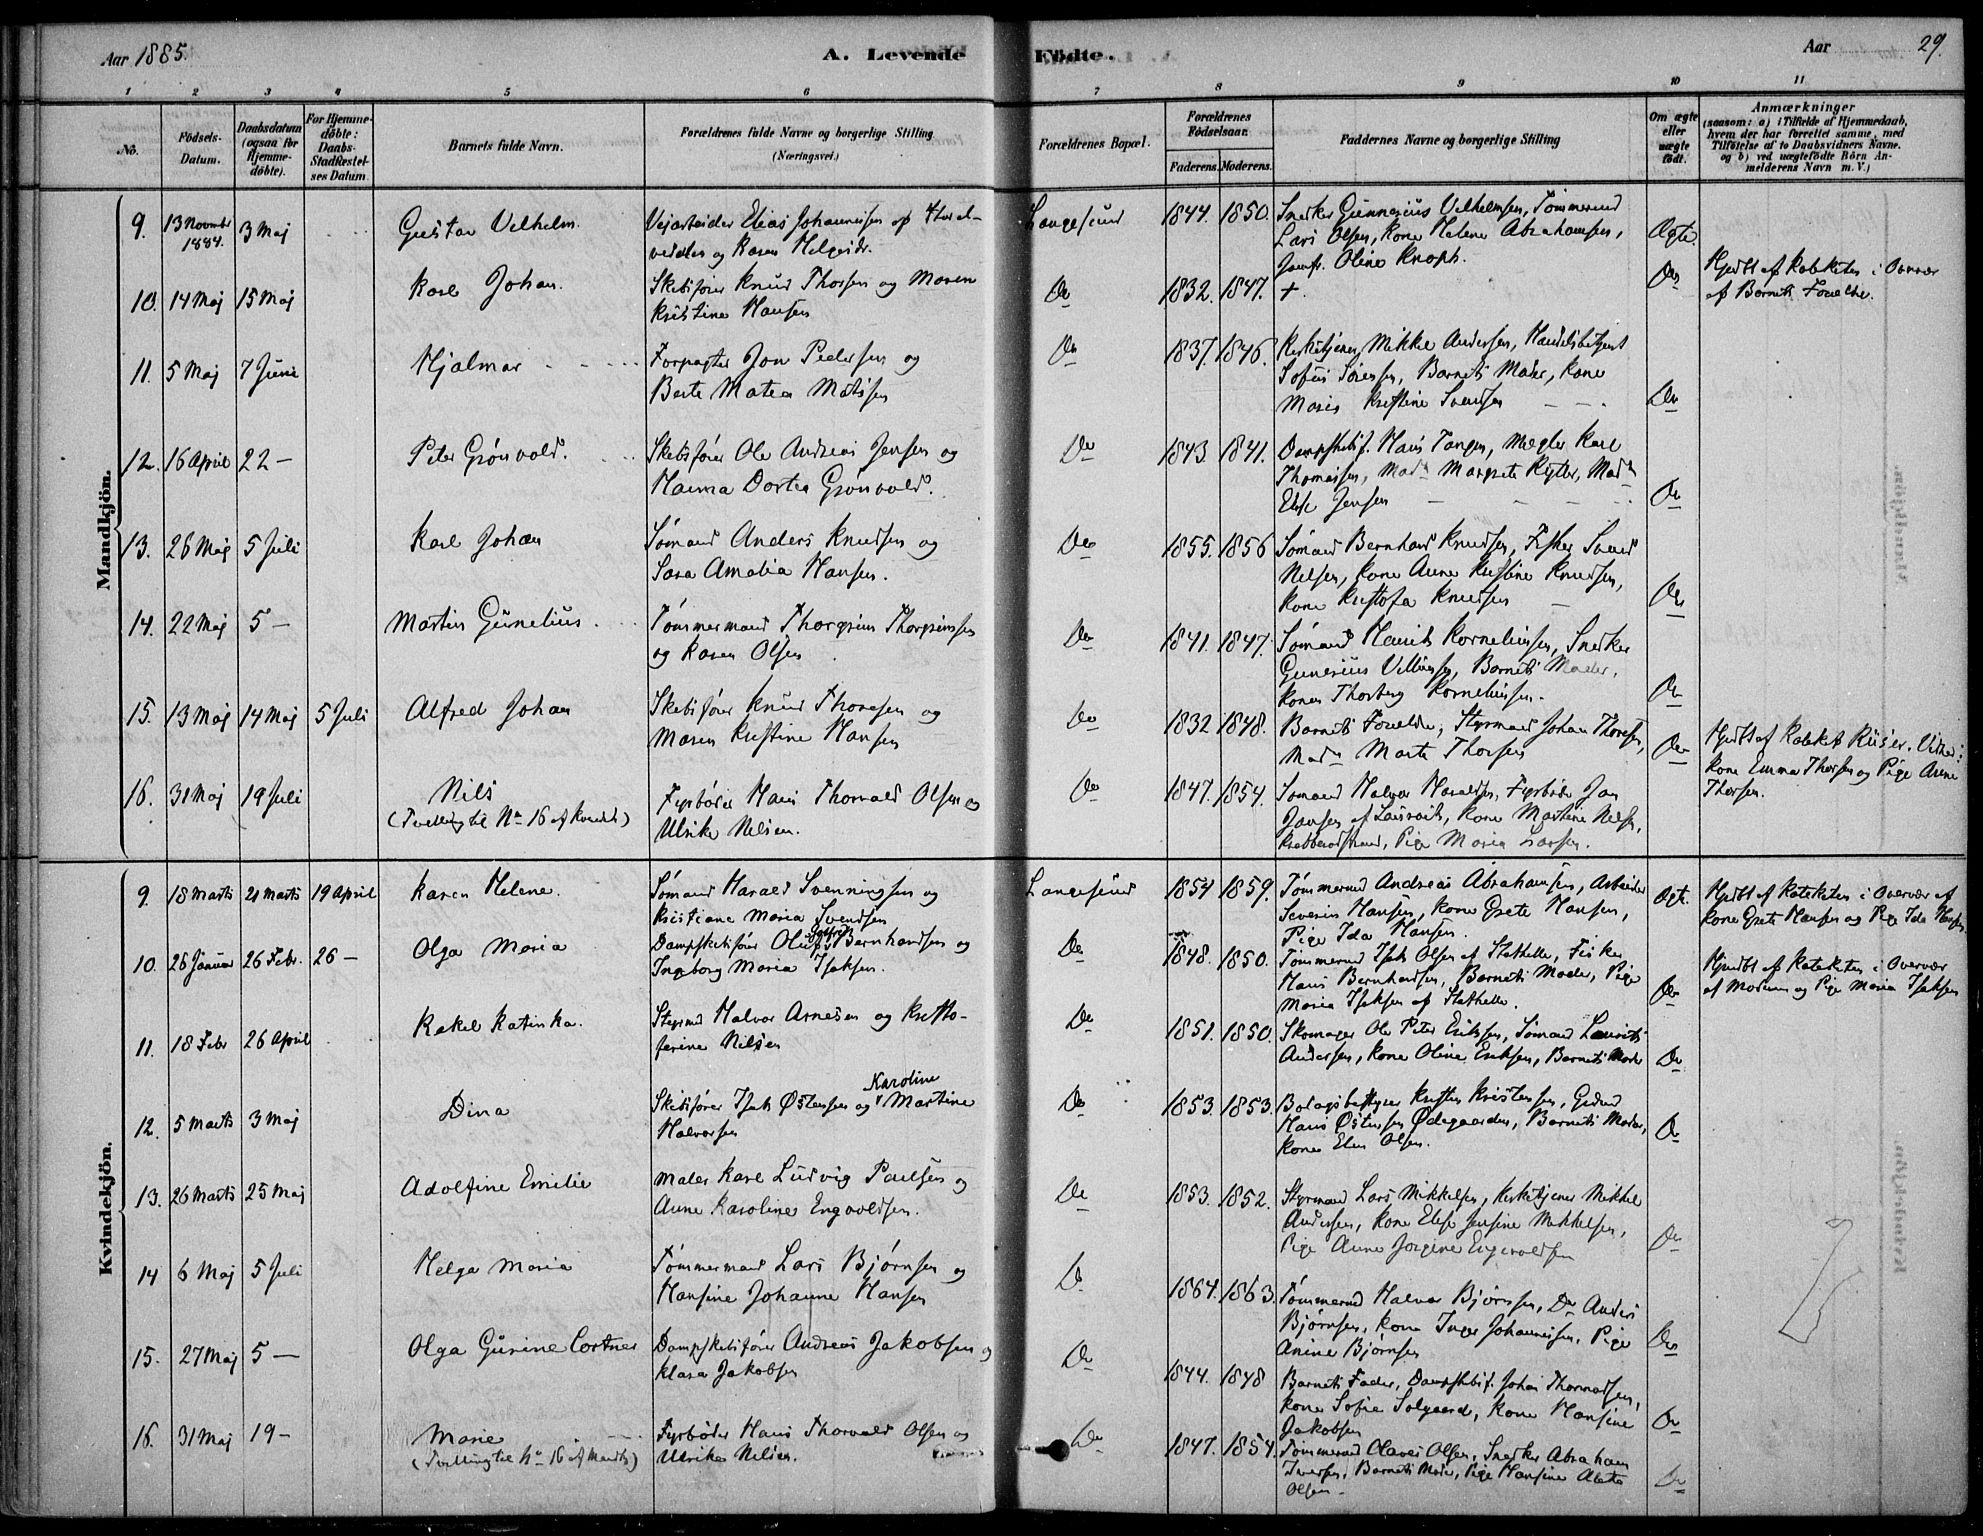 Aar 1885.
A. Levende Födte.
Aar
29.
1 2 3 4 5 6 7 8 9 10 11
No.
Födsels-Datum.
Daabsdatum (ogsaa for Hjemme-döbte).
For Hjemme-döbte: Daabs-Stadfæstel-ses Datum.
Barnets fulde Navn.
Forældrenes fulde Navne og borgerlige Stilling
(Næringsvei.)
Forældrenes Bopæl.
Forældrenes Födselsaar.
Faderens. Moderens.
Faddernes Navne og borgerlige Stilling
Om ægte eller uægte födt.
Anmærkninger
(saasom: a) i Tilfælde af Hjemmedaab,
hvem der har forrettet samme, med
Tilföielse af to Daabsvidners Navne.
og b) ved uægtefödte Börn An-
melderens Navn m. V.)
Mandkjön.
9. 13 Novmbr 1884. 3 Maj Gustav Vilhelm. Vejarbeider Elias Johannesen og Karen Helgesdr. Langesund 1844. 1850. Snedker Gunnerius Vilhelmsen, Tømmermd
Lars Olsen, kone Helene Abrahamsen,
Jomfr. Oline Knoph. Ægte.
10. 14 Maj 15 Maj Karl Johan. Skibsfører Knud Thorsen og Maren
Kristine Hansen Do 1832. 1847. + Do Hjdbt af Kateketen i Overvær
af Barnets Forældre.
11. 5 Maj 7 Juni Hjalmar Forpagter Jon Pedersen og
Berte Matea Matissen Do 1837. 1846. Kirketjener Mikkel Andersen, Handelsbetjent
Sofus Sørensen, Barnets Moder, kone
Maren Kristine Svendsen Do
12. 16 April 22 — Peter Grönvold. Skibsfører Ole Andreas Jensen og
Hanna Dortea Grönvold. Do 1843. 1841. Dampskibsf. Hans Tangen, Mægler Karl
Thomassen, Mad. Margrete Rytter, Mad.
Else Jensen Do
13. 26 Maj 5 Juli Karl Johan Sømand Anders Knudsen og
Sara Amalia Hansen. Do 1855. 1856 Sømand Bernhard Knudsen, Fisker Svend
Nilsen, kone Anne Kristine Knudsen,
kone Kristofa Knudsen Do
14. 22 Maj 5 — Martin Gunelius. Tømmermand Thorgrim Thorgrimsen
og Karen Olsen Do 1841. 1847. Sømand Hanits Kornelinsen, Snedker
Gunerius Villumsen, Barnets Moder,
kone Thorborg Kornelinsen. Do
15. 13 Maj 14 Maj 5 Juli Alfred Johan Skibsfører Knud Thorsen og
Maren Kristine Hansen Do 1832 1848. Barnets Forældre, Styrmand Johan Thorsen,
Mad. Marte Thorsen Do Hjdbt af Kateket Riiser. Vidner:
kone Emma Thorsen og Pige Anne
Thorsen.
16. 31 Maj 19 Juli Nils
(Tvilling til No 16 af Kvindek) Fyrbøder Hans Thorvald Olsen og
Ulrike Nilsen. Do 1847. 1854. Sømand Halvor Haraldsen, Fyrbøder Jan
Jansen af Laurvik, kone Martine Nilsen,
Krabberødstrand, Pige Maria Larsen.
Kvindekjön.
9. 18 Marts 21 Marts 19 April Karen Helene. Sømand Harald Svenningsen og
Kristiane Maria Svendsen Langesund 1854 1859. Tømmermd Andreas Abrahamsen, Arbeider
Severin Hansen, kone Grete Hansen,
Pige Ida Hansen. Ægte. Hjdbt af Kateketen i Overvær af
kone Grete Hansen og Pige Ida Hansen.
10. 26 Januar 26 Febr. 26 — Olga Maria Dampskibsfører Oluf Bernhardsen og
Ingeborg Maria Isaksen. Do 1848. 1850. Tømmermd Isak Olsen af Stathelle, Fisker
Hans Bernhardsen, Barnets Moder, Pige
Maria Isaksen af Stathelle. Do Hjemdbt af Kateketen i Overvær
af Moderen og Pige Maria Isaksen
11. 18 Febr 26 April Rakel Katinka. Styrmd Halvor Arnesen og Kristo-
ferine Nilsen Do 1851. 1850. Skomager Ole Peter Eriksen, Sømand Laurits
Andersen, kone Oline Eriksen, Barnets Moder Do
12. 5 Marts 3 Maj Dina Skibsfører Isak Østensen og Karoline Martine
Halvorsen Do 1853. 1853. Bolagsbestyrer Kristen Kristensen, Grdmd
Hans Østensen Ødegaarden, Barnets Moder,
kone Elen Olsen. Do
13. 26 Marts 25 Maj Adolfine Emilie Maler Karl Ludvig Paulsen og
Anne Karoline Engvoldsen. Do 1853. 1852. Styrmand Lars Mikkelsen, Kirketjener Mikkel
Andersen, kone Elise Jensine Mikkelsen,
Pige Anne Jorgine Engvoldsen Do
14 6 Maj 5 Juli Helga Maria Tømmermand Lars Bjørnsen og
Hansine Johanne Hansen Do 1864. 1863. Tømmermd Halvor Bjørnsen, Do Anders
Bjørnsen, kone Inger Johannesen, Pige
Anine Bjørnsen Do
15. 27 Maj 5 — Olga Gurine Cortner Dampskibsfører Andreas Jakobsen og
Klara Jakobsen Do 1844. 1848 Barnets Fader, Dampskibsf. Johan Thormodsen,
kone Sofie Solgaard, kone Hansine
Jakobsen Do
16. 31 Maj 19 — Marie
(Tvilling til No 16 af Mandk) Fyrbøder Hans Thorvald Olsen og
Ulrike Nilsen. Do 1847. 1854. Tømmermd Olaves Olsen, Snedker Abraham
Iversen, Barnets Moder, Pige Hansine Alette
Olsen. Do